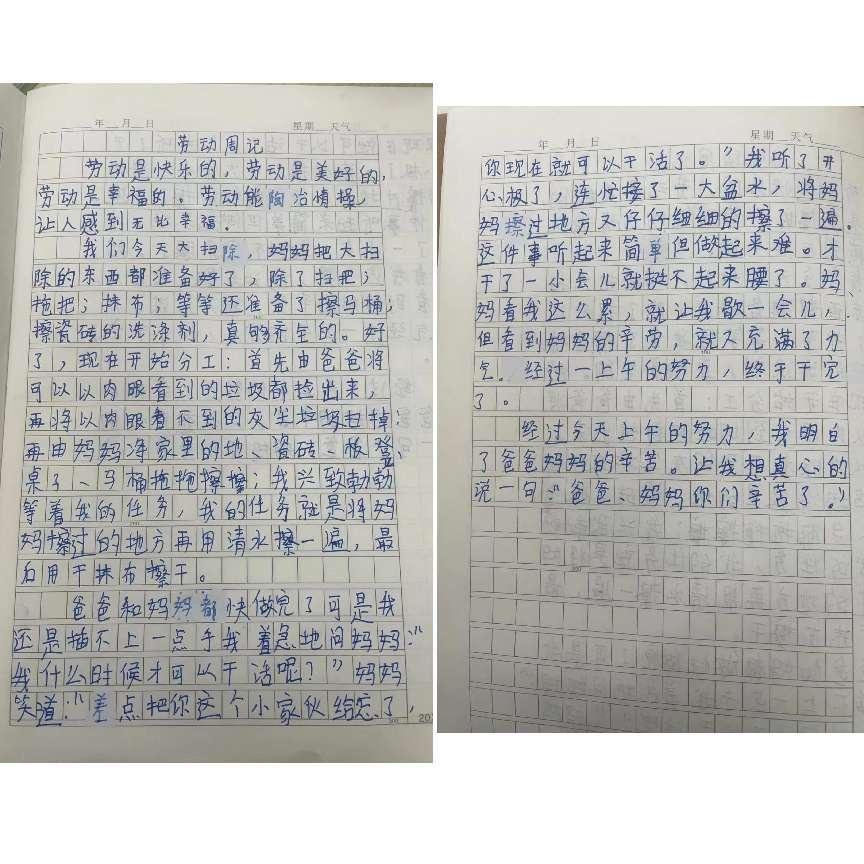 年 月 日 星期 天气
劳动周记
劳动是快乐的，劳动是美好的，
劳动是幸福的。劳动能陶冶情操，
让人感到无比幸福。
我们今天大扫除，妈妈把大扫
除的东西都准备好了，除了扫把；
拖把；抹布；等等还准备了擦马桶；
擦瓷砖的洗涤剂，真够齐全的。好
了，现在开始分工：首先由爸爸将
可以以肉眼看到的垃圾都捡出来，
再将以肉眼看不到的灰尘垃圾扫掉；
再由妈妈净家里的地、瓷砖、板登、
桌子、马桶拖拖擦擦；我兴致勃勃
等着我的任务，我的任务就是将妈
妈擦过的地方再用清水擦一遍，最
后用干抹布擦干。
爸爸和妈妈都快做完了可是我
还是插不上一点手我着急地问妈妈：“
我什么时候才可以干活呢？”妈妈
笑道：“差点把你这个小家伙给忘了，
年 月 日 星期 天气
你现在就可以干活了。”我听了开
心极了，连忙接了一大盆水，将妈
妈擦过地方又仔仔细细的擦了一遍。
这件事听起来简单但做起来难。才
干了一小会儿就挺不起来腰了。妈
妈看我这么累，就让我歇一会儿，
但看到妈妈的辛劳，就又充满了力
气。经过一上午的努力，终于干完
了。
经过今天上午的努力，我明白
了爸爸妈妈的辛苦。让我想真心的
说一句：“爸爸、妈妈你们辛苦了。”